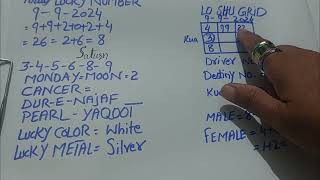 LUCKY NUMBER
9-9-2024
= 9+9+2+0+2+4
= 26 = 2+6 = 8
Saturn
3-4-5-6-8-9
MONDAY=MOON=2
CANCER=
DUR-E-NAJAF
PEARL-YAQOOT
LUCKY COLOR= White
LUCKY METAL= Silver
LO SHU GRID
9-9-2024
4 99 22
3
8
Driver No
Destiny No.
MALE=
FEMALE= 4+
=1+2=